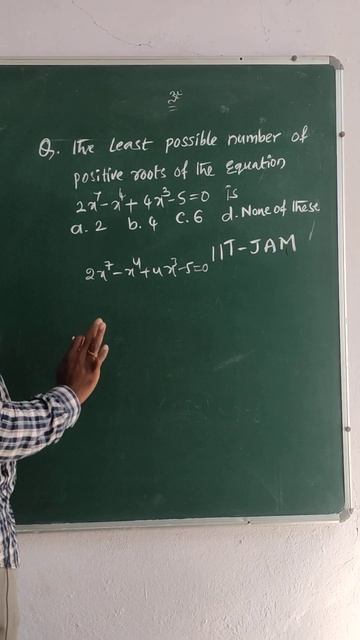 Q. The Least possible number of
positive roots of the Equation
2x⁷-x⁴+4x³-5=0 is
a. 2 b. 4 c. 6 d. None of these
2x⁷-x⁴+4x³-5=0 IIT-JAM